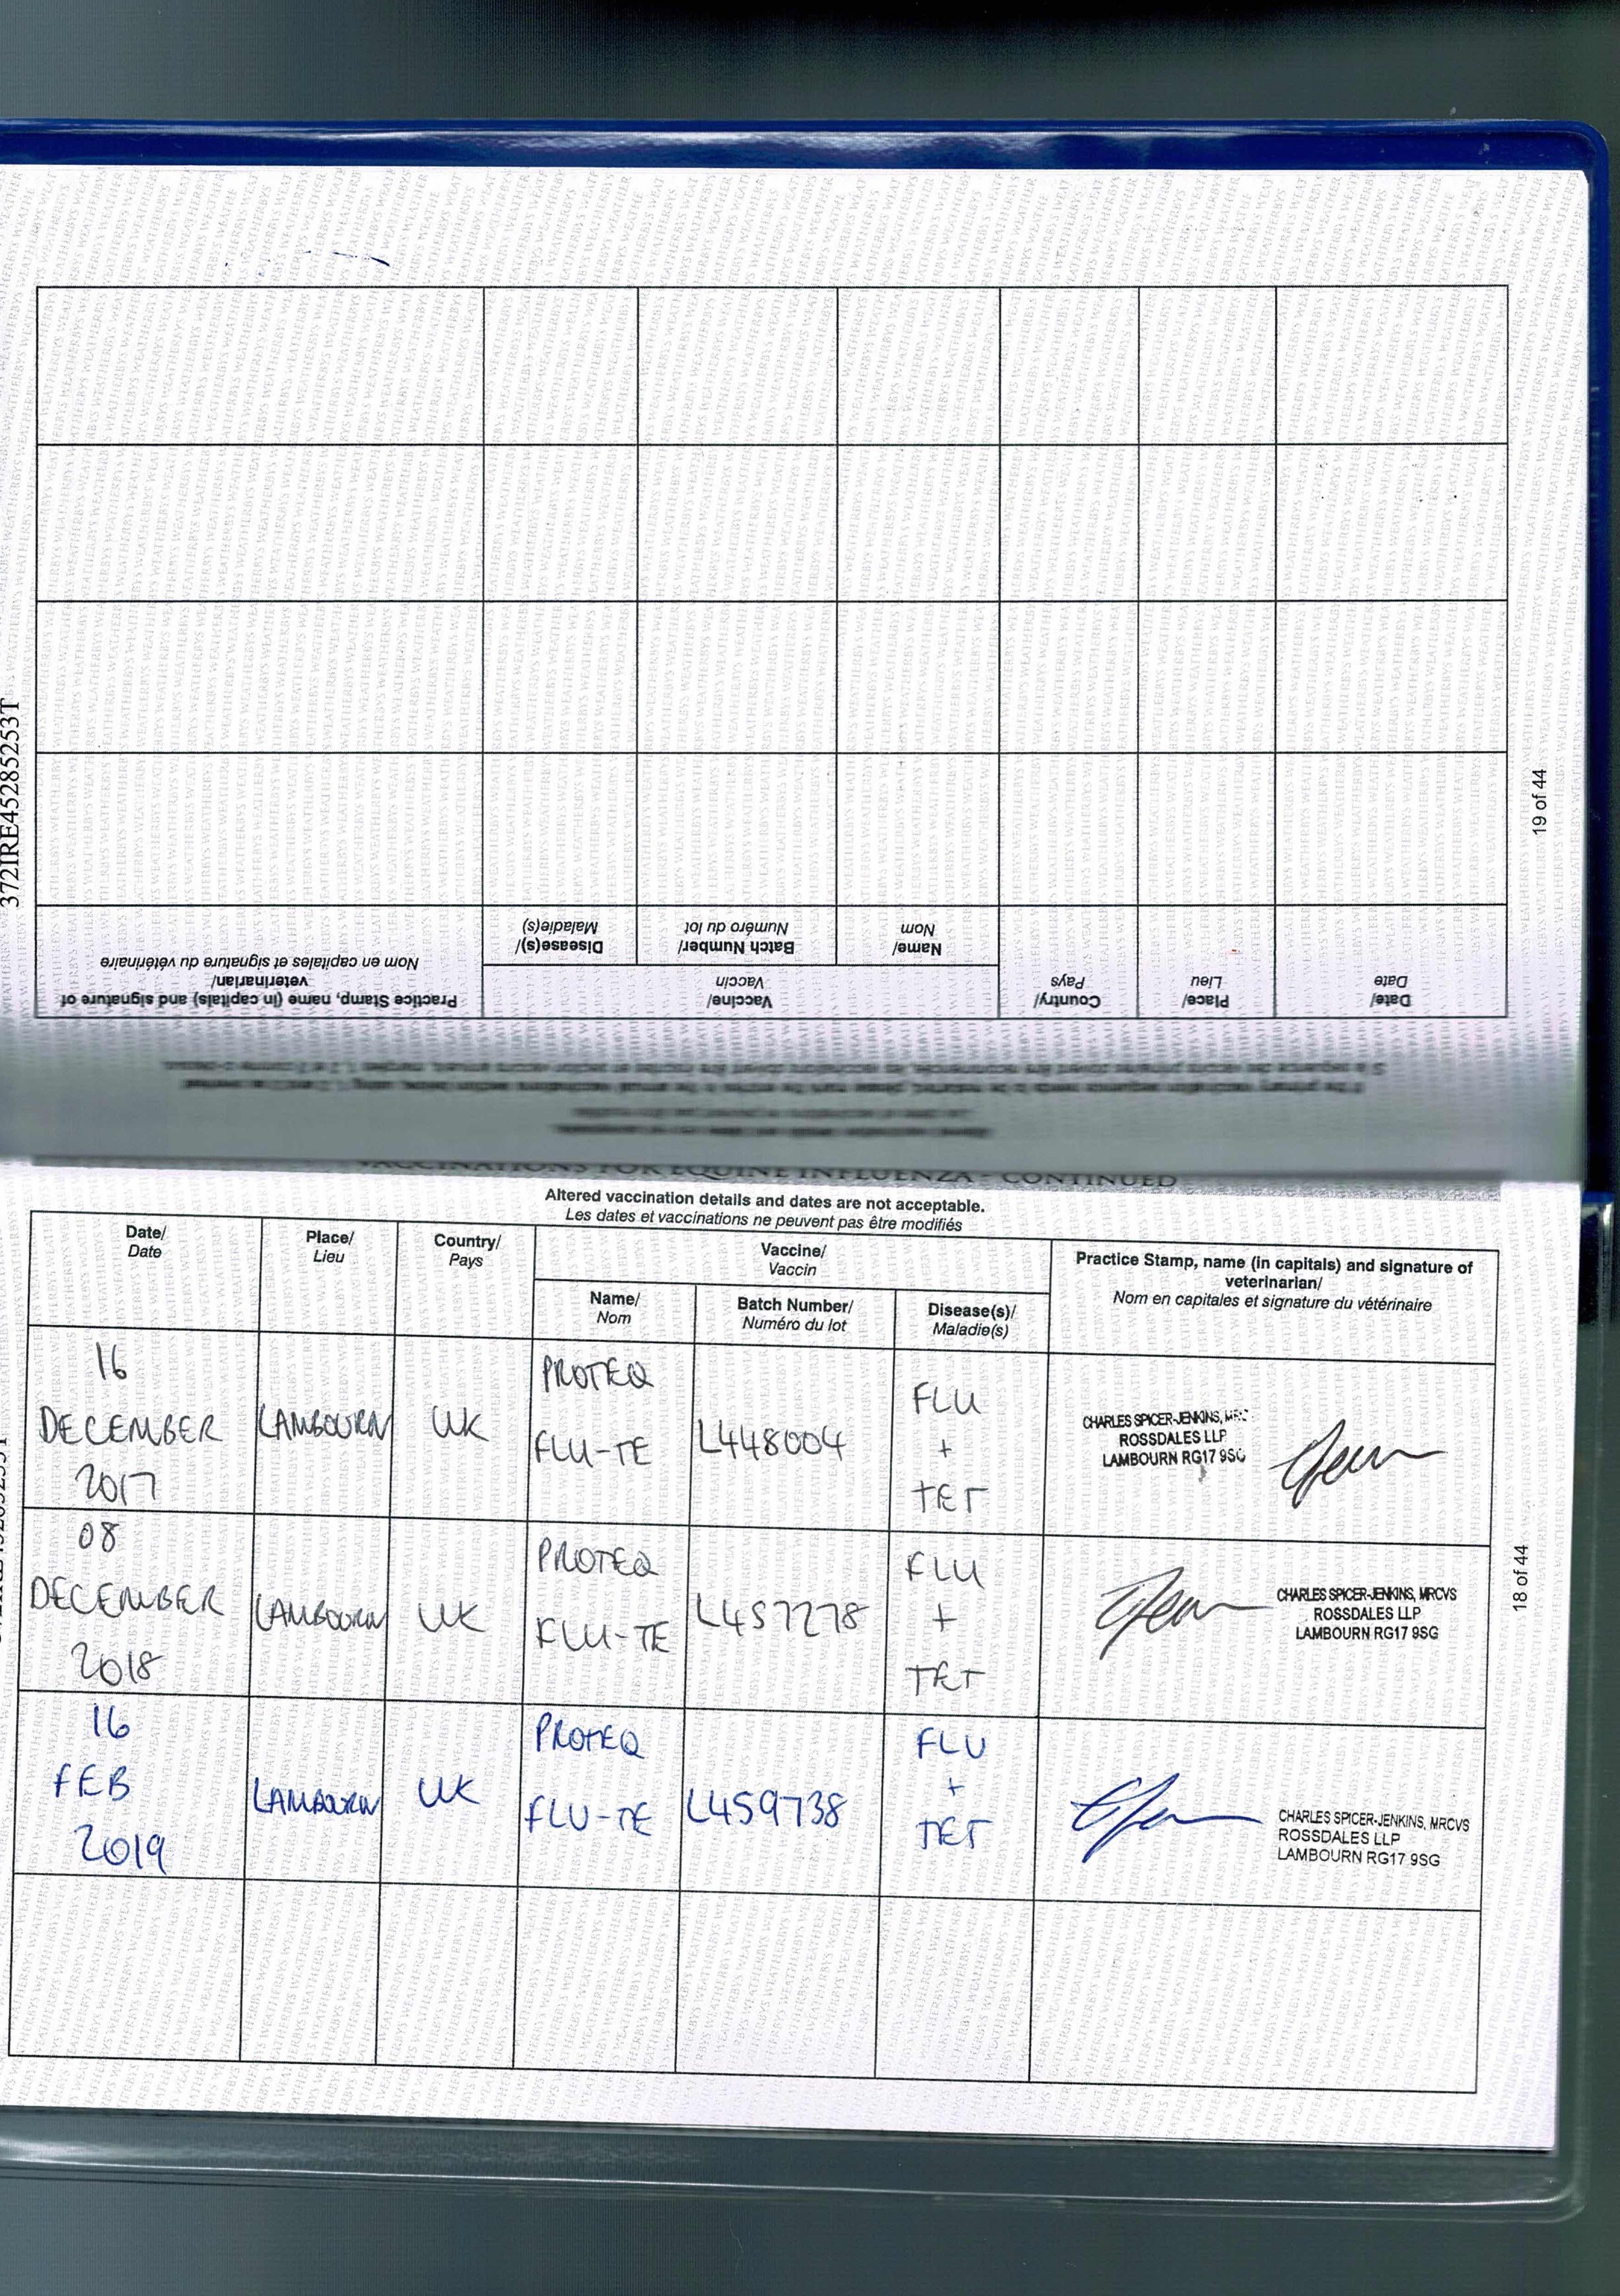 372IRE45285253T
19 of 44
Date/
Date
Place/
Lieu
Country/
Pays
Vaccine/
Vaccin
Name/
Nom
Batch Number/
Numéro du lot
Disease(s)/
Maladie(s)
Practice Stamp, name (in capitals) and signature of
veterinarian/
Nom en capitales et signature du vétérinaire
VACCINATIONS FOR EQUINE INFLUENZA - CONTINUED
Altered vaccination details and dates are not acceptable.
Les dates et vaccinations ne peuvent pas être modifiés
Date/
Date
Place/
Lieu
Country/
Pays
Vaccine/
Vaccin
Name/
Nom
Batch Number/
Numéro du lot
Disease(s)/
Maladie(s)
Practice Stamp, name (in capitals) and signature of
veterinarian/
Nom en capitales et signature du vétérinaire
16
DECEMBER
2017
LAMBOURN
UK
PROTEQ
FLU-TE
L448004
FLU
+
TET
CHARLES SPICER-JENKINS,
ROSSDALES LLP
LAMBOURN RG17 9SG
08
DECEMBER
2018
LAMBOURN
UK
PROTEQ
FLU-TE
L457278
FLU
+
TET
CHARLES SPICER-JENKINS, MRCVS
ROSSDALES LLP
LAMBOURN RG17 9SG
16
FEB
2019
LAMBOURN
UK
PROTEQ
FLU-TE
L459738
FLU
+
TET
CHARLES SPICER-JENKINS, MRCVS
ROSSDALES LLP
LAMBOURN RG17 9SG
18 of 44